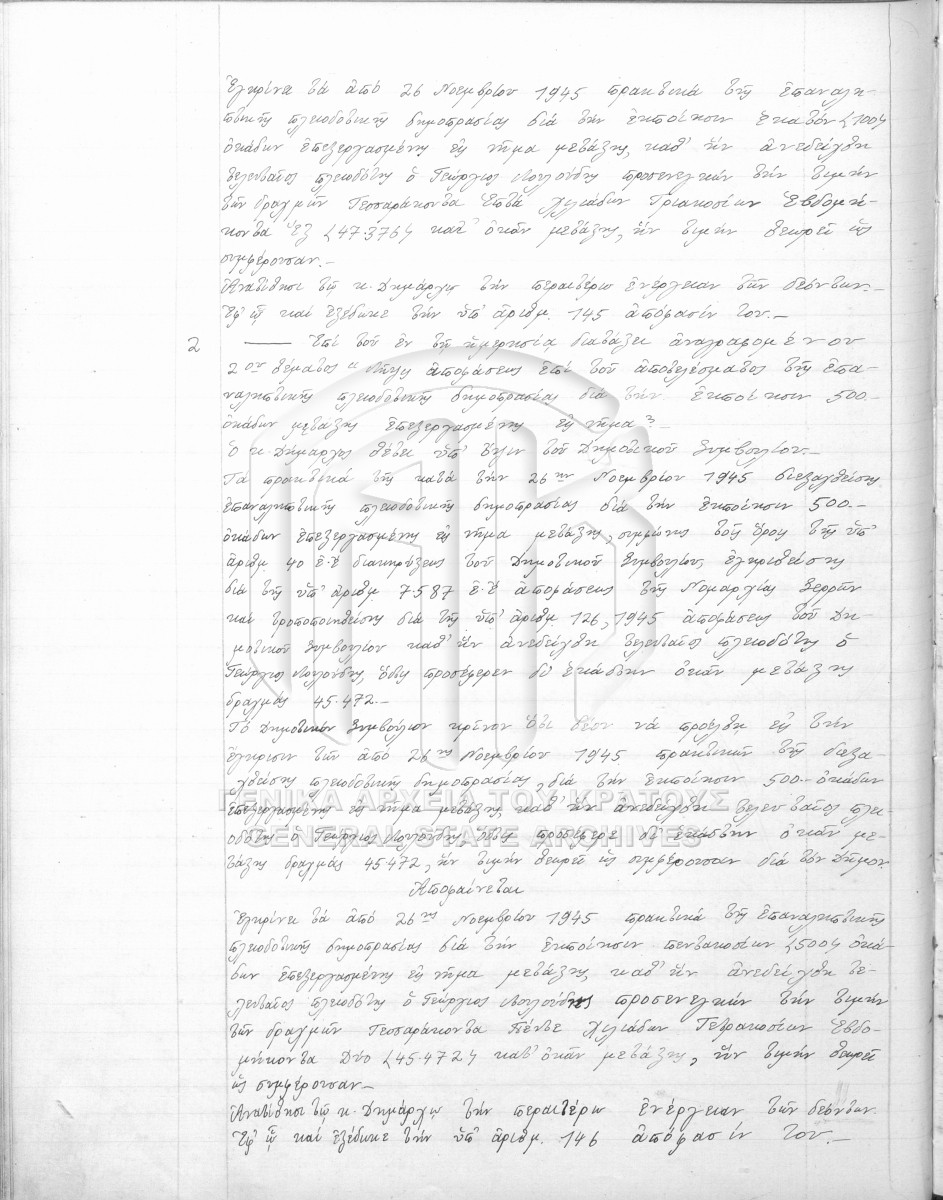 Ἐγκρίνει τά ἀπό 26 Νοεμβρίου 1945 πρακτικά τῆς ἐπαναλη-
πτικῆς πλειοδοτικῆς δημοπρασίας διά τήν ἐκποίησιν ἑκατόν (100)
ὀκάδων ἐπεξεργασμένης εἰς νῆμα μετάξης, καθ' ἥν ἀνεδείχθη
τελευταῖος πλειοδότης ὁ Γεώργιος προσενεγκών τήν τιμήν
τῶν δραχμῶν Τεσσαράκοντα Ἑπτά Χιλιάδων Τριακοσίων Ἑβδομή-
κοντα Ἕξ (47.376) κατ' ὀκᾶν μετάξης, ἥν τιμήν θεωρεῖ ὡς
συμφέρουσαν.-
Ἀνατίθησι τῷ κ. Δημάρχῳ τήν περαιτέρω ἐνέργειαν τῶν δεόντων.-
Ἐφ' ᾧ καί ἐξέδωκε τήν ὑπ' ἀριθμ. 145 ἀπόφασίν του.-
2 Ἐπί τοῦ ἐν τῇ ἡμερησίᾳ διατάξει ἀναγραφομένου
2ου θέματος "Λῆψις ἀποφάσεως ἐπί τοῦ ἀποτελέσματος τῆς ἐπα-
ναληπτικῆς πλειοδοτικῆς δημοπρασίας διά τήν ἐκποίησιν 500.-
ὀκάδων μετάξης ἐπεξεργασμένης εἰς νῆμα".-
Ὁ κ. Δήμαρχος θέτει ὑπ' ὄψιν τοῦ Δημοτικοῦ Συμβουλίου.-
Τά πρακτικά τῆς κατά τήν 26ην Νοεμβρίου 1945 διεξαχθείσης
ἐπαναληπτικῆς πλειοδοτικῆς δημοπρασίας διά τήν ἐκποίησιν 500.-
ὀκάδων ἐπεξεργασμένης εἰς νῆμα μετάξης, συμφώνως τοῖς ὅροις τῆς ὑπ'
ἀριθμ 40 ἐ.ἔ διακηρύξεως τοῦ Δημοτικοῦ Συμβουλίου, ἐγκριθείσης
διά τῆς ὑπ' ἀριθμ. 7587 ἐ.ἔ ἀποφάσεως τῆς Νομαρχίας Σερρῶν
καί τροποποιηθείσης διά τῆς ὑπ' ἀριθμ 126, 1945 ἀποφάσεως τοῦ Δη-
μοτικοῦ Συμβουλίου καθ' ἥν ἀνεδείχθη τελευταῖος πλειοδότης ὁ
Γεώργιος ὅστις προσέφερεν δι' ἑκάστην ὀκᾶν μετάξης
δραχμάς 45.472.-
Τό Δημοτικόν Συμβούλιον κρῖνον ὅτι δέον νά προέλθῃ εἰς τήν
ἔγκρισιν τῶν ἀπό 26ης Νοεμβρίου 1945 πρακτικῶν τῆς διεξα-
χθείσης πλειοδοτικῆς δημοπρασίας, διά τήν ἐκποίησιν 500.- ὀκάδων
ἐπεξεργασμένης εἰς νῆμα μετάξης καθ' ἥν ἀνεδείχθη τελευταῖος πλει-
οδότης ὁ Γεώργιος ὅστις προσέφερε δι' ἑκάστην ὀκᾶν με-
τάξης δραχμάς 45.472, ἥν τιμήν θεωρεῖ ὡς συμφέρουσαν διά τόν Δῆμον.
Ἀποφαίνεται
Ἐγκρίνει τά ἀπό 26ης Νοεμβρίου 1945 πρακτικά τῆς ἐπαναληπτικῆς
πλειοδοτικῆς δημοπρασίας διά τήν ἐκποίησιν πεντακοσίων (500) ὀκά-
δων ἐπεξεργασμένης εἰς νῆμα μετάξης, καθ' ἥν ἀνεδείχθη τε-
λευταῖος πλειοδότης ὁ Γεώργιος προσενεγκών τήν τιμήν
τῶν δραχμῶν Τεσσαράκοντα Πέντε Χιλιάδων Τετρακοσίων Ἑβδο-
μήκοντα Δύο (45.472) κατ' ὀκᾶν μετάξης, ἥν τιμήν θεωρεῖ
ὡς συμφέρουσαν.-
Ἀνατίθησι τῷ κ. Δημάρχῳ τήν περαιτέρω ἐνέργειαν τῶν δεόντων.
Ἐφ' ᾧ καί ἐξέδωκε τήν ὑπ' ἀριθμ. 146 ἀπόφασίν του.-
ΓΕΝΙΚΑ ΑΡΧΕΙΑ ΤΟΥ ΚΡΑΤΟΥΣ
GENERAL STATE ARCHIVES